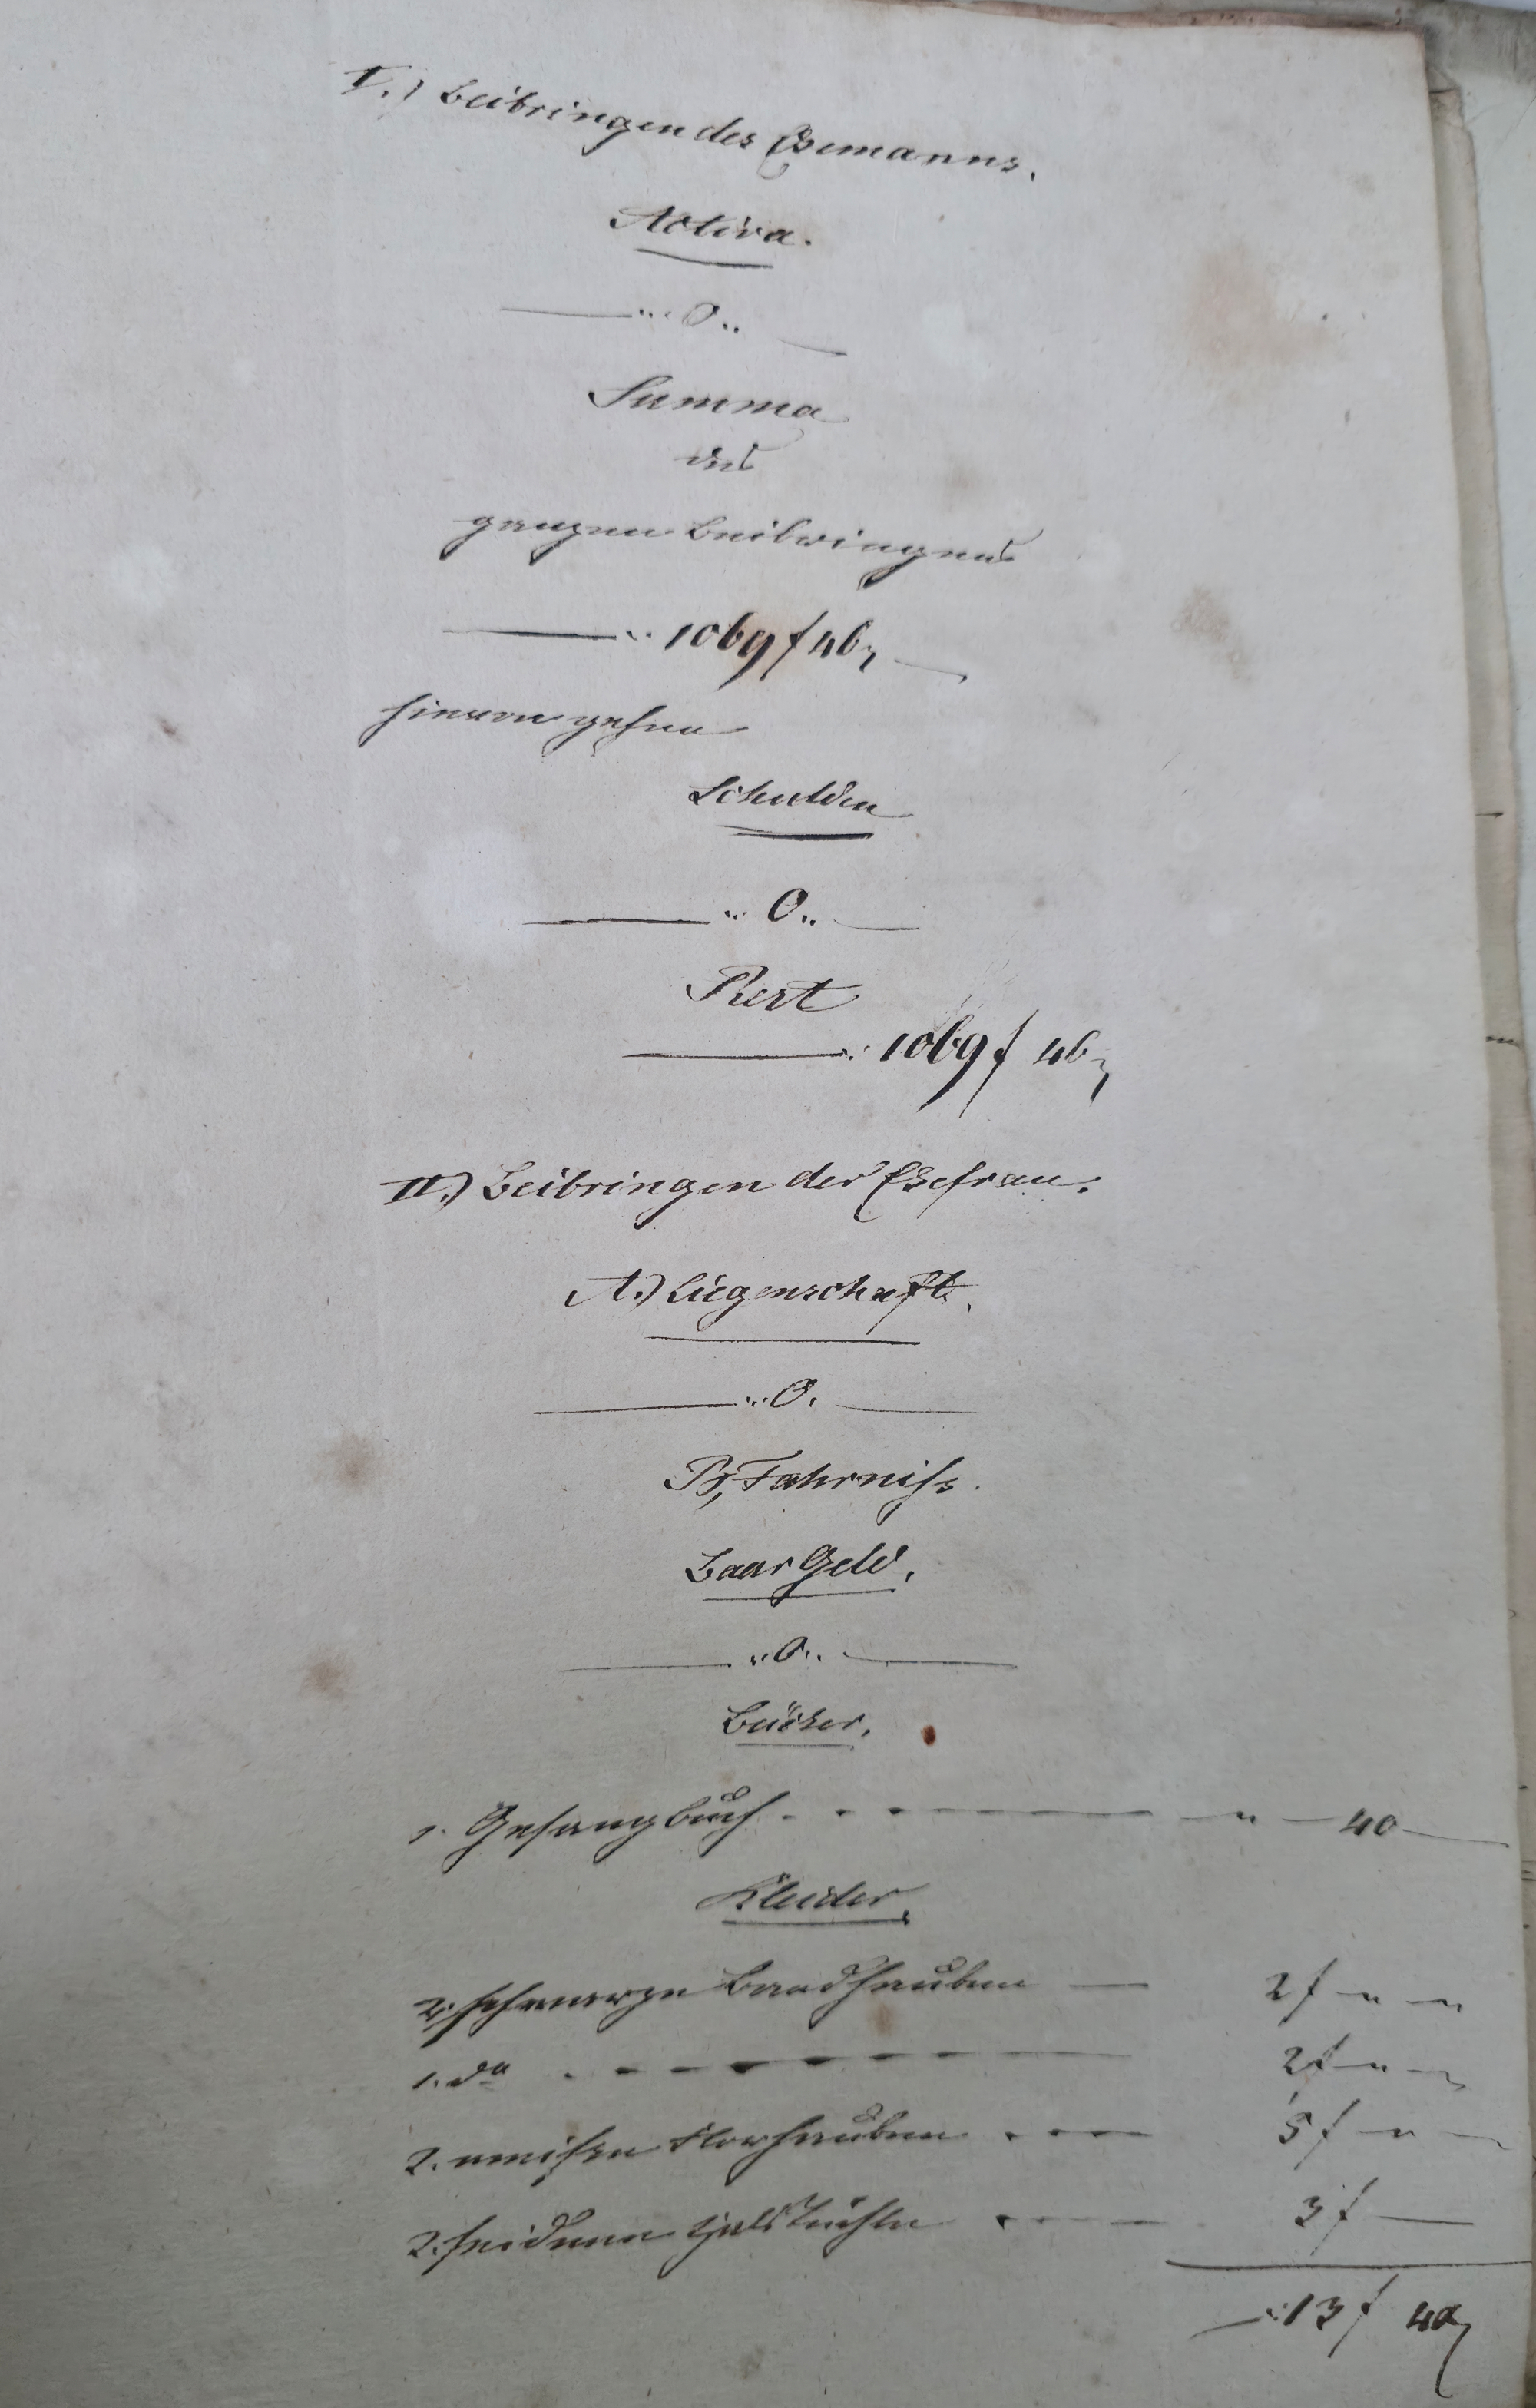 I.) Beibringen des Ehemanns.
Activa.
— „ 0 „ —
Summa
des
ganzen Beibringens
— „ 1069 f 46 x —
hievon gehen
Schulden
— „ 0 „ —
Rest
— „ 1069 f 46 x
II.) Beibringen der Ehefrau.
A.) Liegenschaft.
— „ 0. —
B, Fahrniss.
Baar Geld.
— „ 0 „ —
Bücher.
1. Gesangbuch - - - — „ — 40 —
Kleider.
2. schwarze Bandhauben — 2 f — „ —
1. do - - - — 2 f — „ —
2. weißen Florhauben - - - 5 f — „ —
2. seidene Halstüchle - - - 3 f —
— „ 13 f 40 x